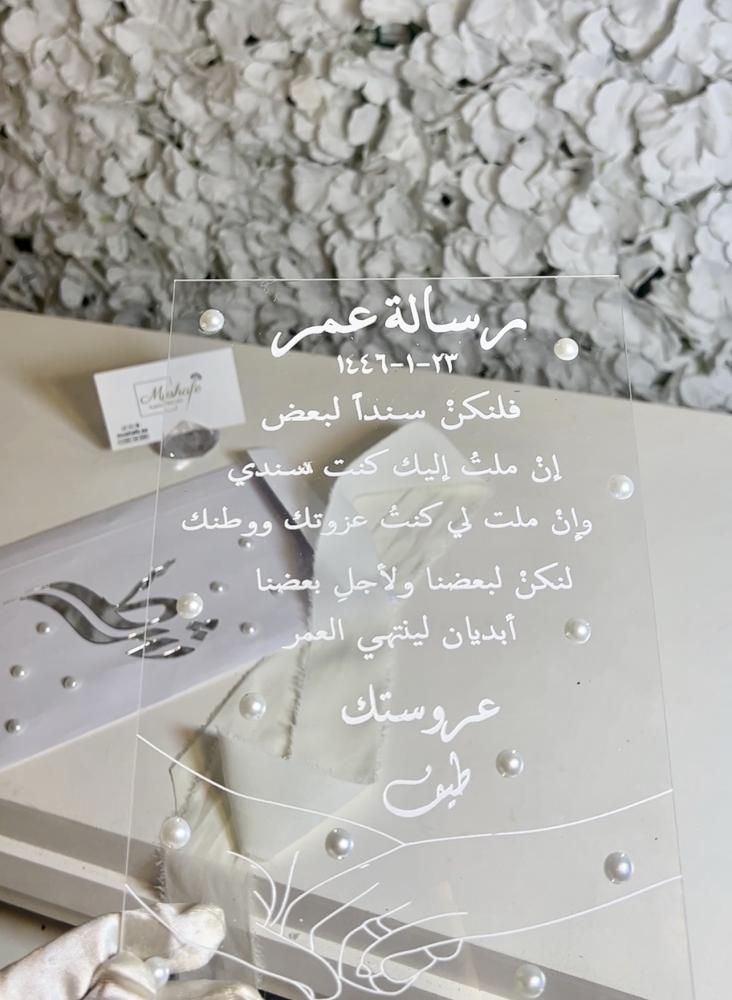 رسالة عمر
٢٣-١-١٤٤٦
فلنكنْ سنداً لبعض
إنْ ملتُ إليك كنت سندي
وإنْ ملت لي كنتُ عزوتك ووطنك
لنكنْ لبعضنا ولأجلِ بعضنا
أبديان لينتهي العمر
عروستك
طيف
Moshafe